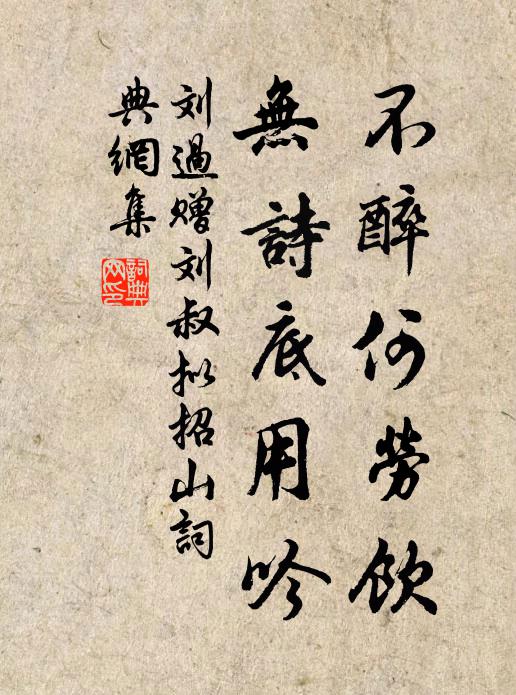 不醉何勞飲
無詩底用吟
刘過赠刘叔拟招山詞
典網集
詞典网印